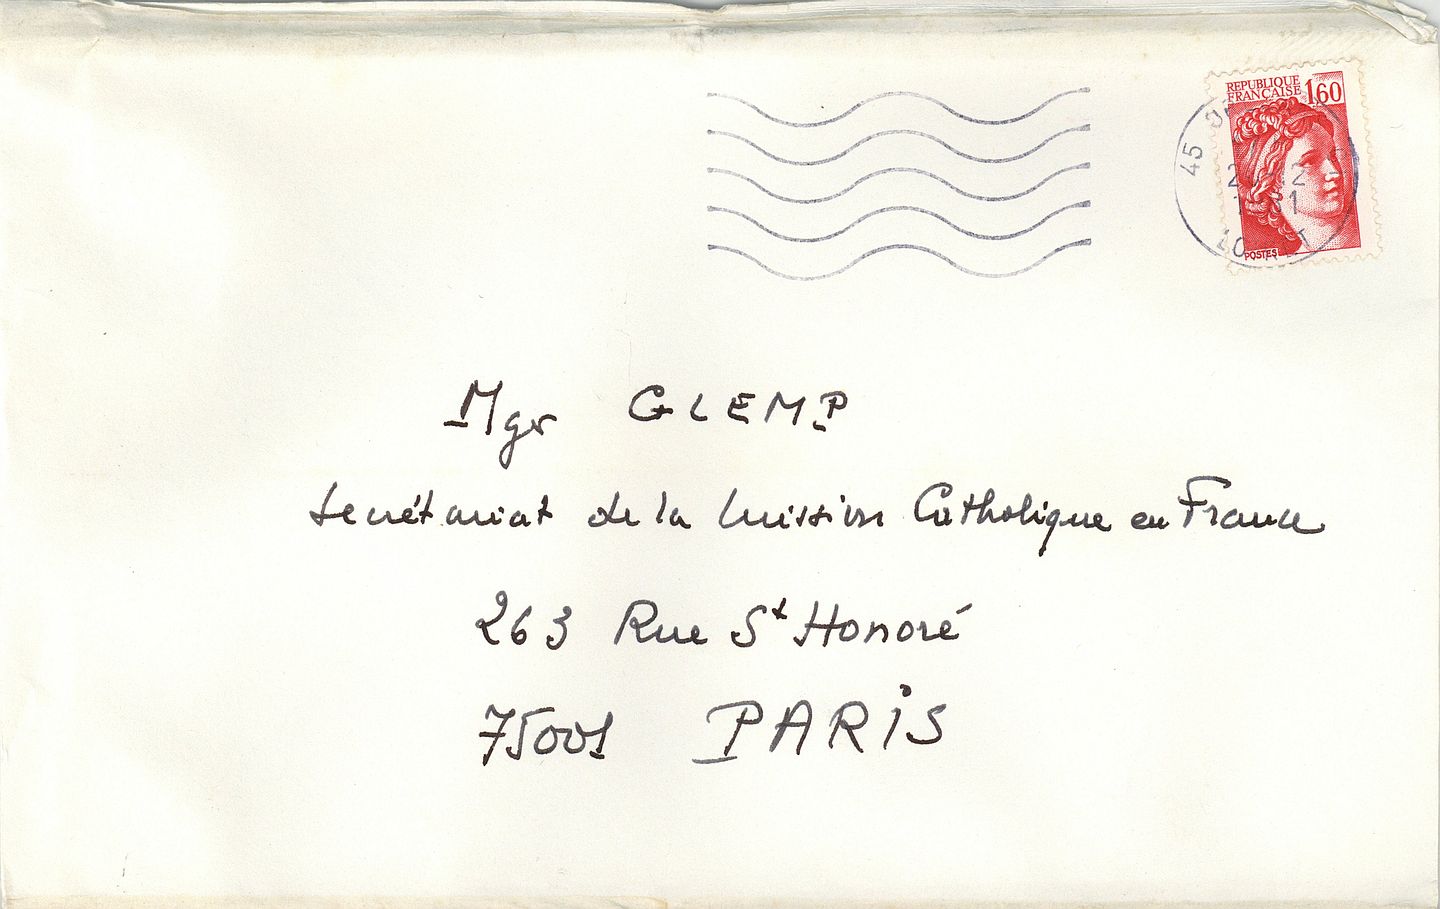 REPUBLIQUE
FRANÇAISE 1,60
45
POSTES
Mgr GLEMP
Secrétariat de la Mission Catholique en France
263 Rue St Honoré
75001 PARIS